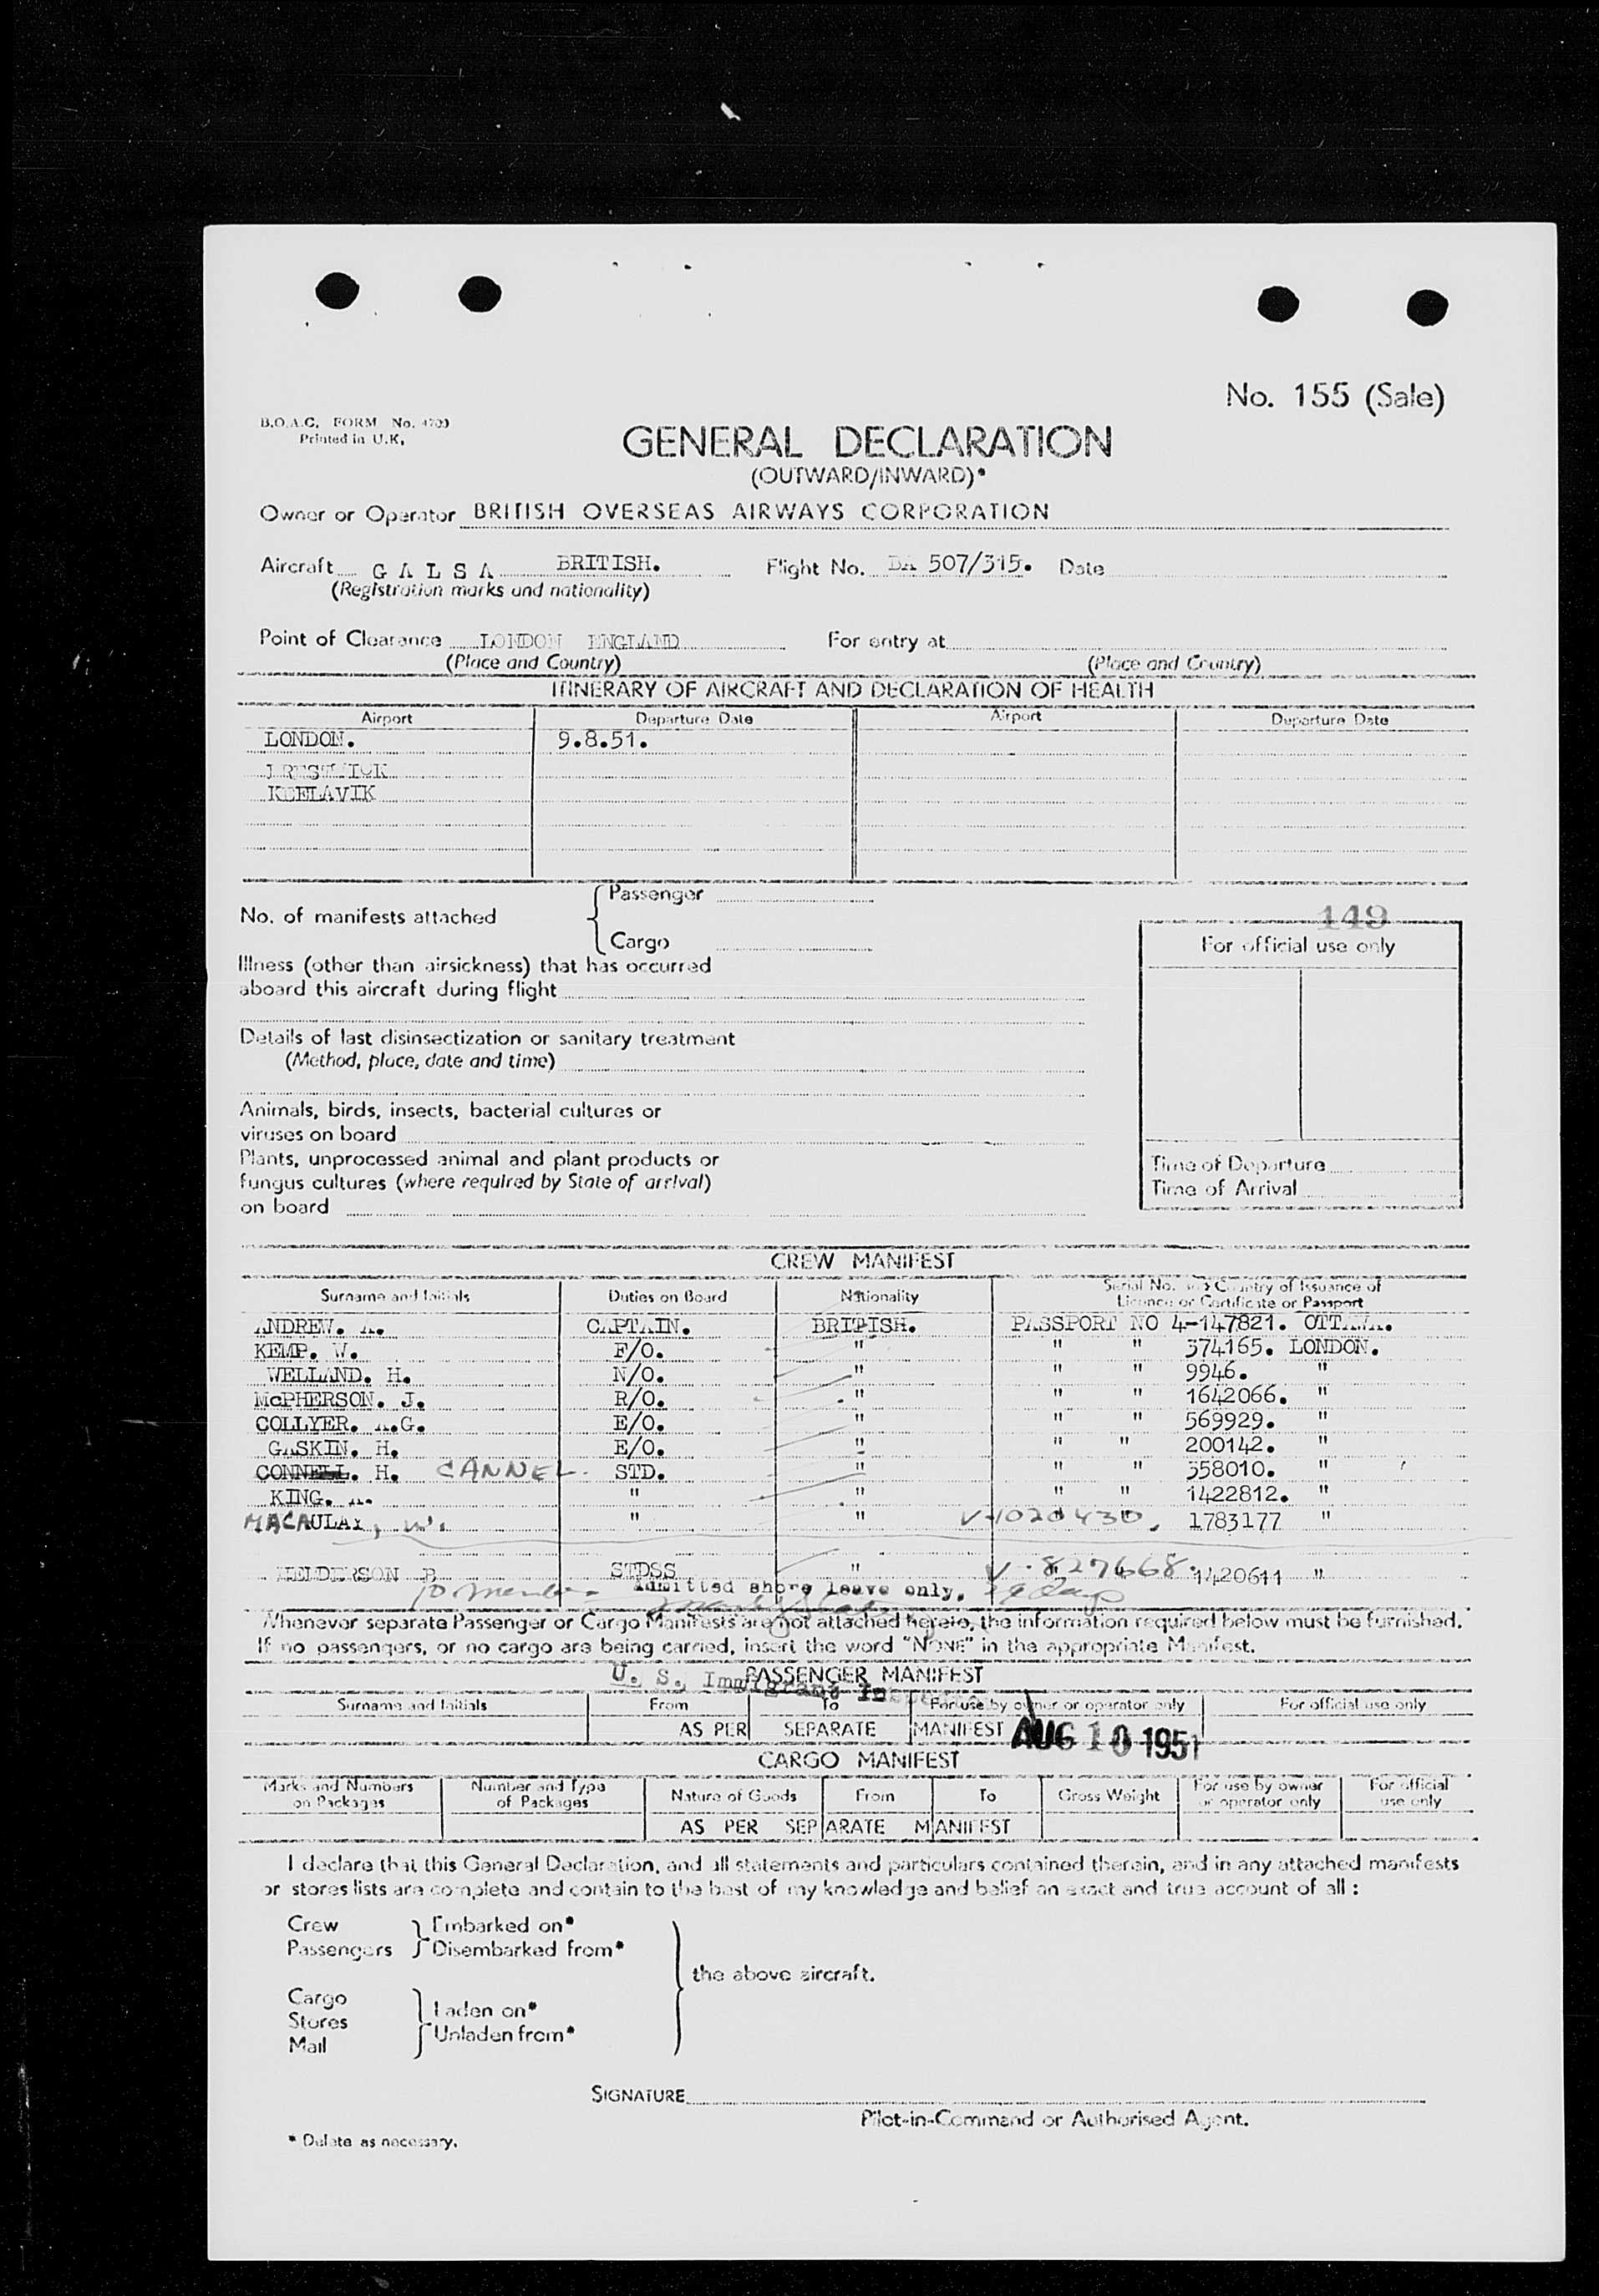 No. 155 (Sale)
B.O.A.C. FORM No. 4709
Printed in U.K.
GENERAL DECLARATION
(OUTWARD/INWARD)*
Owner or Operator BRITISH OVERSEAS AIRWAYS CORPORATION
Aircraft G A L S A BRITISH. Flight No. BA 507/315. Date
(Registration marks and nationality)
Point of Clearance LONDON ENGLAND For entry at
(Place and Country) (Place and Country)
ITINERARY OF AIRCRAFT AND DECLARATION OF HEALTH
Airport Departure Date Airport Departure Date
LONDON. 9.8.51.
PRESTWICK
KEELAVIK
No. of manifests attached { Passenger
Cargo
149
For official use only
Illness (other than airsickness) that has occurred
aboard this aircraft during flight
Details of last disinsectization or sanitary treatment
(Method, place, date and time)
Animals, birds, insects, bacterial cultures or
viruses on board
Plants, unprocessed animal and plant products or
fungus cultures (where required by State of arrival)
on board
Time of Departure
Time of Arrival
CREW MANIFEST
Surname and Initials Duties on Board Nationality Serial No. and Country of Issuance of
Licence or Certificate or Passport
ANDREW. A. CAPTAIN. BRITISH. PASSPORT NO 4-147821. OTTAWA.
KEMP. W. F/O. " " " 374165. LONDON.
WELLAND. H. N/O. " " " 9946. "
McPHERSON. J. R/O. " " " 1642066. "
COLLYER. A.G. E/O. " " " 569929. "
GASKIN. H. E/O. " " " 200142. "
CONNELL. H. CANNEL. STD. " " " 358010. "
KING. A. " " " " 1422812. "
MACAULAY, W. " " V-1020430. 1783177 "
HENDERSON B STDSS " V-827668. 1420611 "
10 members Admitted shore leave only, 29 days
Whenever separate Passenger or Cargo Manifests are not attached hereto, the information required below must be furnished.
If no passengers, or no cargo are being carried, insert the word "NONE" in the appropriate Manifest.
U. S. Immigrant Inspector
PASSENGER MANIFEST
Surname and Initials From To For use by owner or operator only For official use only
AS PER SEPARATE MANIFEST
AUG 10 1951
CARGO MANIFEST
Marks and Numbers on Packages Number and Type of Packages Nature of Goods From To Gross Weight For use by owner or operator only For official use only
AS PER SEPARATE MANIFEST
I declare that this General Declaration, and all statements and particulars contained therein, and in any attached manifests
or stores lists are complete and contain to the best of my knowledge and belief an exact and true account of all :
Crew
Passengers } Embarked on*
Disembarked from*
the above aircraft.
Cargo
Stores
Mail } Laden on*
Unladen from*
SIGNATURE
Pilot-in-Command or Authorised Agent.
* Delete as necessary.